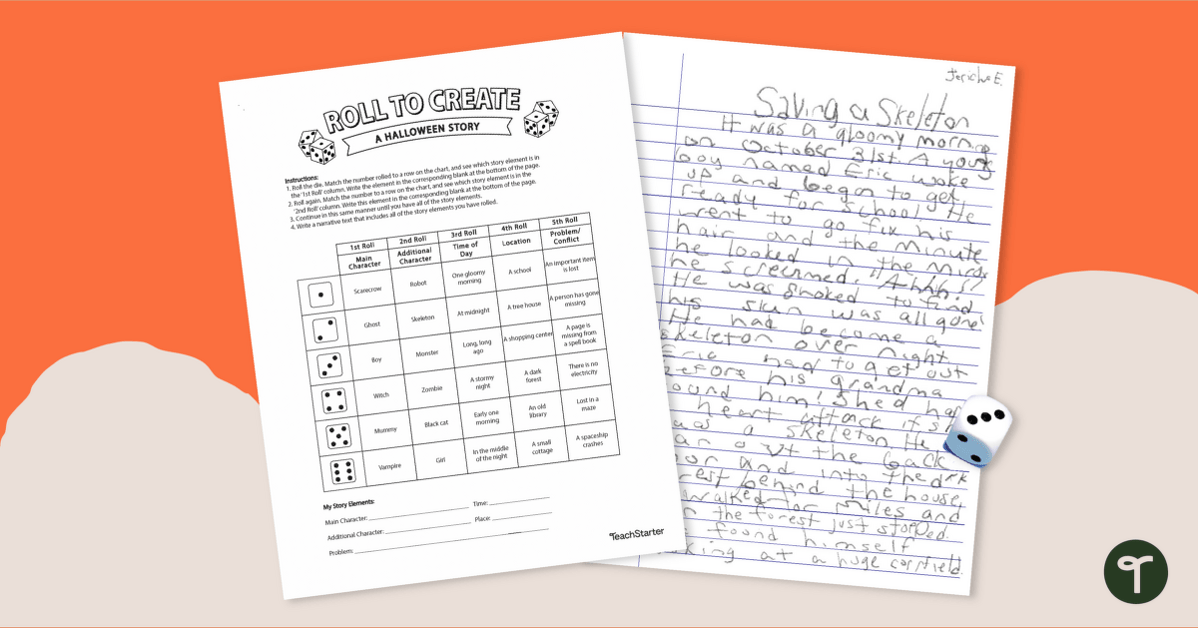 ROLL TO CREATE
A HALLOWEEN STORY
Instructions:
1. Roll the die. Match the number rolled to a row on the chart, and see which story element is in
the '1st Roll' column. Write the element in the corresponding blank at the bottom of the page.
2. Roll again. Match the number to a row on the chart, and see which story element is in the
'2nd Roll' column. Write this element in the corresponding blank at the bottom of the page.
3. Continue in this same manner until you have all of the story elements.
4. Write a narrative text that includes all of the story elements you have rolled.
1st Roll 2nd Roll 3rd Roll 4th Roll 5th Roll
Main Character Additional Character Time of Day Location Problem/Conflict
Scarecrow Robot One gloomy morning A school An important item is lost
Ghost Skeleton At midnight A tree house A person has gone missing
Boy Monster Long, long ago A shopping center A page is missing from a spell book
Witch Zombie A stormy night A dark forest There is no electricity
Mummy Black cat Early one morning An old library Lost in a maze
Vampire Girl In the middle of the night A small cottage A spaceship crashes
My Story Elements:
Main Character: Time:
Additional Character: Place:
Problem:
TeachStarter
Jericho E.
Saving a Skeleton
It was a gloomy morning
on October 31st. A young
boy named Eric woke
up and began to get
ready for school. He
went to go fix his
hair and the minute
he looked in the
he screemed, "Ahhh!"
He was shoked to find
his skin was all gone!
He had become a
skeleton over night.
Eric had to get out
before his grandma
found him! She'd
heart attack if
was a skeleton. He
out the back
and into the
behind the house,
walked for miles and
the forest just stopped.
found himself
at a huge cornfield.